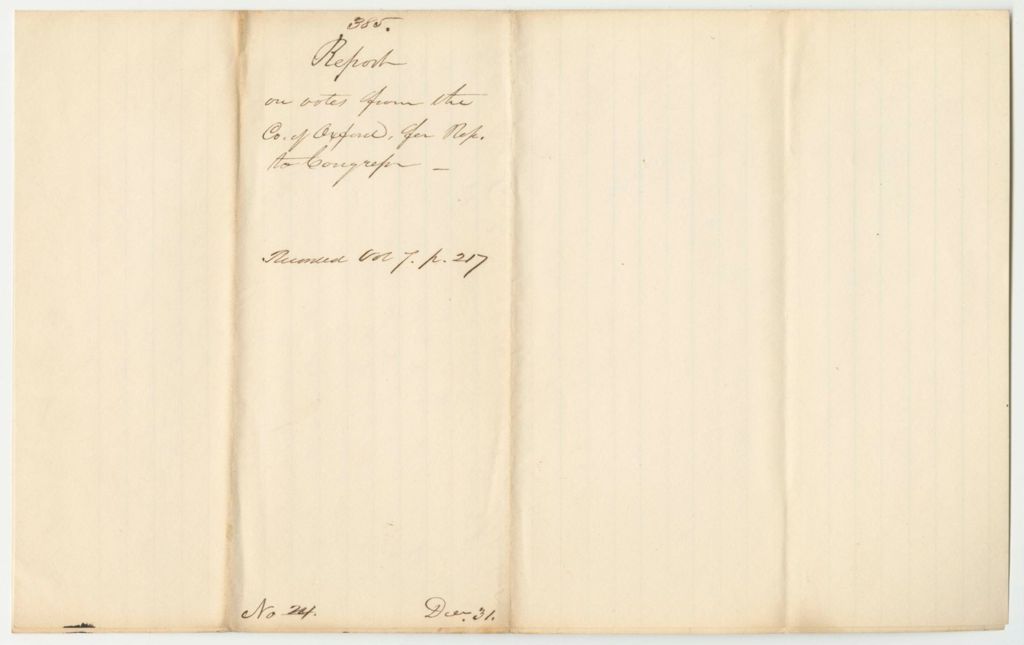 385.
Report
on votes from the
Co. of Oxford, for Rep.
to Congress —
Recorded Vol 7. p. 217
No 24. Dec. 31.